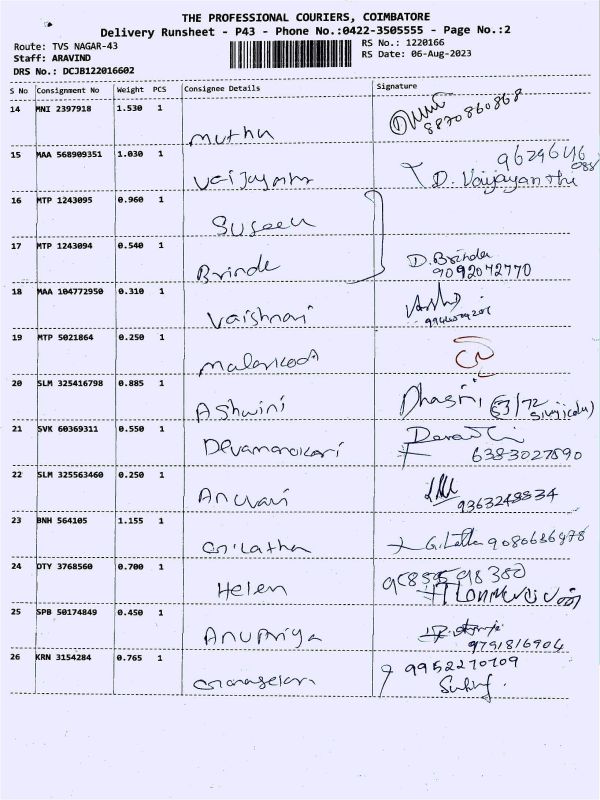 THE PROFESSIONAL COURIERS, COIMBATORE
Delivery Runsheet - P43 - Phone No.:0422-3505555 - Page No.:2
Route: TVS NAGAR-43
Staff: ARAVIND
DRS No.: DCJB122016602
RS No.: 1220166
RS Date: 06-Aug-2023
S No Consignment No Weight PCS Consignee Details Signature
14 MNI 2397918 1.530 1 Muthu 8870860868
15 MAA 568909351 1.030 1 Vaijayanthi D. Vaijayanthi
16 MTP 1243095 0.960 1 Suseen
17 MTP 1243094 0.540 1 Brinde D. Brinda
9092072770
18 MAA 104772950 0.310 1 Vaishnavi
19 MTP 5021864 0.250 1 Malarkodi
20 SLM 325416798 0.885 1 Ashwini
21 SVK 60369311 0.550 1 6383027890
22 SLM 325563460 0.250 1 9363248834
23 BNH 564105 1.155 1 G. Latha 9080686978
24 DTY 3768560 0.700 1 Helen
25 SPB 50174849 0.450 1 Anupriya
9791816904
26 KRN 3154284 0.765 1 9952270709